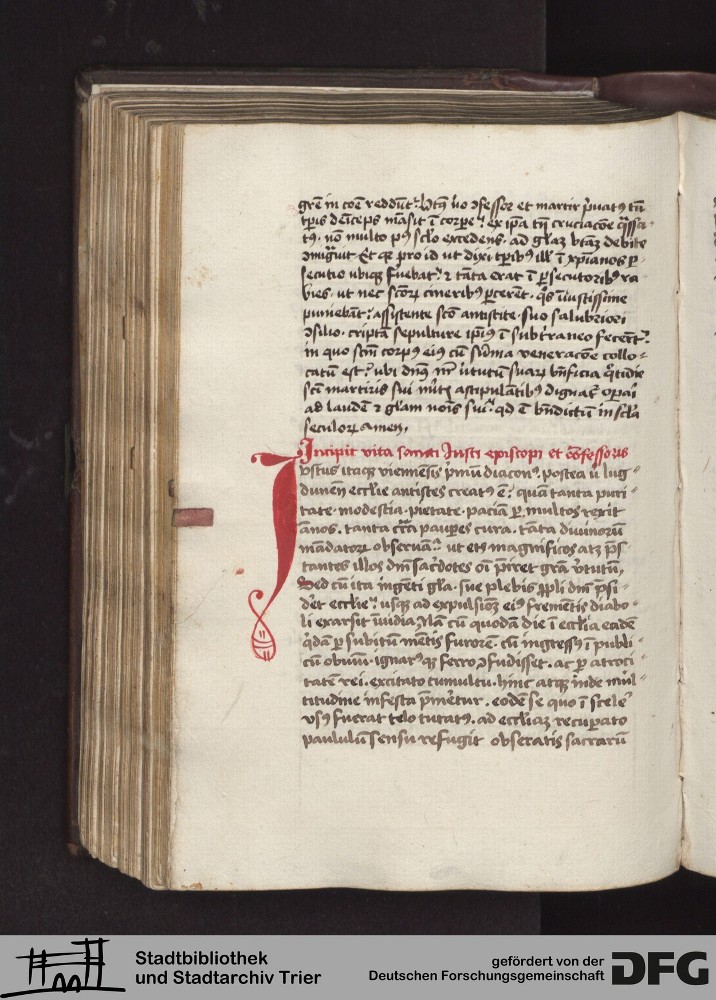 grē in coē reddūt. Utq̄ v̊o ꝯfessor et martir p̄uatꝰ tū
tp̄is deīceps māsit ī corpe. ex ip̄a tn̄ cruciacōe
tꝰ. nō multo pꝰ sclo excedens. ad gl̄az debite
secutio ubiqꝫ fuebat. ⁊ tāta erat ī ꝑsecutoribꝰ ra
bies. ut nec scōꝝ cineribꝰ ꝑcerēt. qͦs iīustissime
puniebāt. assistente scō antistite. suo salubriori
ꝯsilio. criptā sepulture ip̄iꝰ ī subtraneo fecerūt.
in quo scm̄ corpus eiꝰ cū sūma veneracōe collo-
catū est. ubi dn̄s nr̄ v̓tutū suaꝝ bn̄ficia qͦtidie
scī martiris sui astipulātibꝰ dignat̄ opari
ad laudē ⁊ gl̄am nois sui. qd ē bn̄dictū in scl̄a
seculoꝝ amen.
Incipit vita sancti Iusti episcopi et cōfessoris
Iustus itaqꝫ viennēsis p̄mū diaconꝰ. postea ū lug-
dunēn eccl̄ie antistes creatꝰ ē. quā tanta puri-
tate. modestia. pietate. paciā ꝑ multos rexit
ānos. tanta circa pauꝑes cura. tāta divinorū
mādatoꝝ obsērvā. ut etꝰ magnificos atqꝫ p̄s-
tantes illos dn̄i sac̓dotes oī p̄iret gr̄a v̓tutū.
Sed cū ita ingēti gl̄a. sue plebis ppli dn̄i p̄si-
dēt eccl̄ie. usqꝫ ad expulsionē eiꝰ fremētis diabo-
li exarsit īvidia. Nā cū quodā die ī eccl̄ia eadē
qͥdā ꝑ subitū mētis furorē. cū ingressꝰ ī publi-
cū obuiū. ignarusqꝫ ferro ꝯfudisset. ac ꝑ atroci-
tatē rei. excitato tumultu. hinc atqꝫ inde mul-
titudine infesta p̄metur. eodē se quo ī scele-
vsꝰ fuerat telo tutatꝰ. ad eccl̄iaꝫ recuꝑato
paululū sensu refugit obseratis sacrarū
Stadtbibliothek
und Stadtarchiv Trier
gefördert von der
Deutschen Forschungsgemeinschaft
DFG